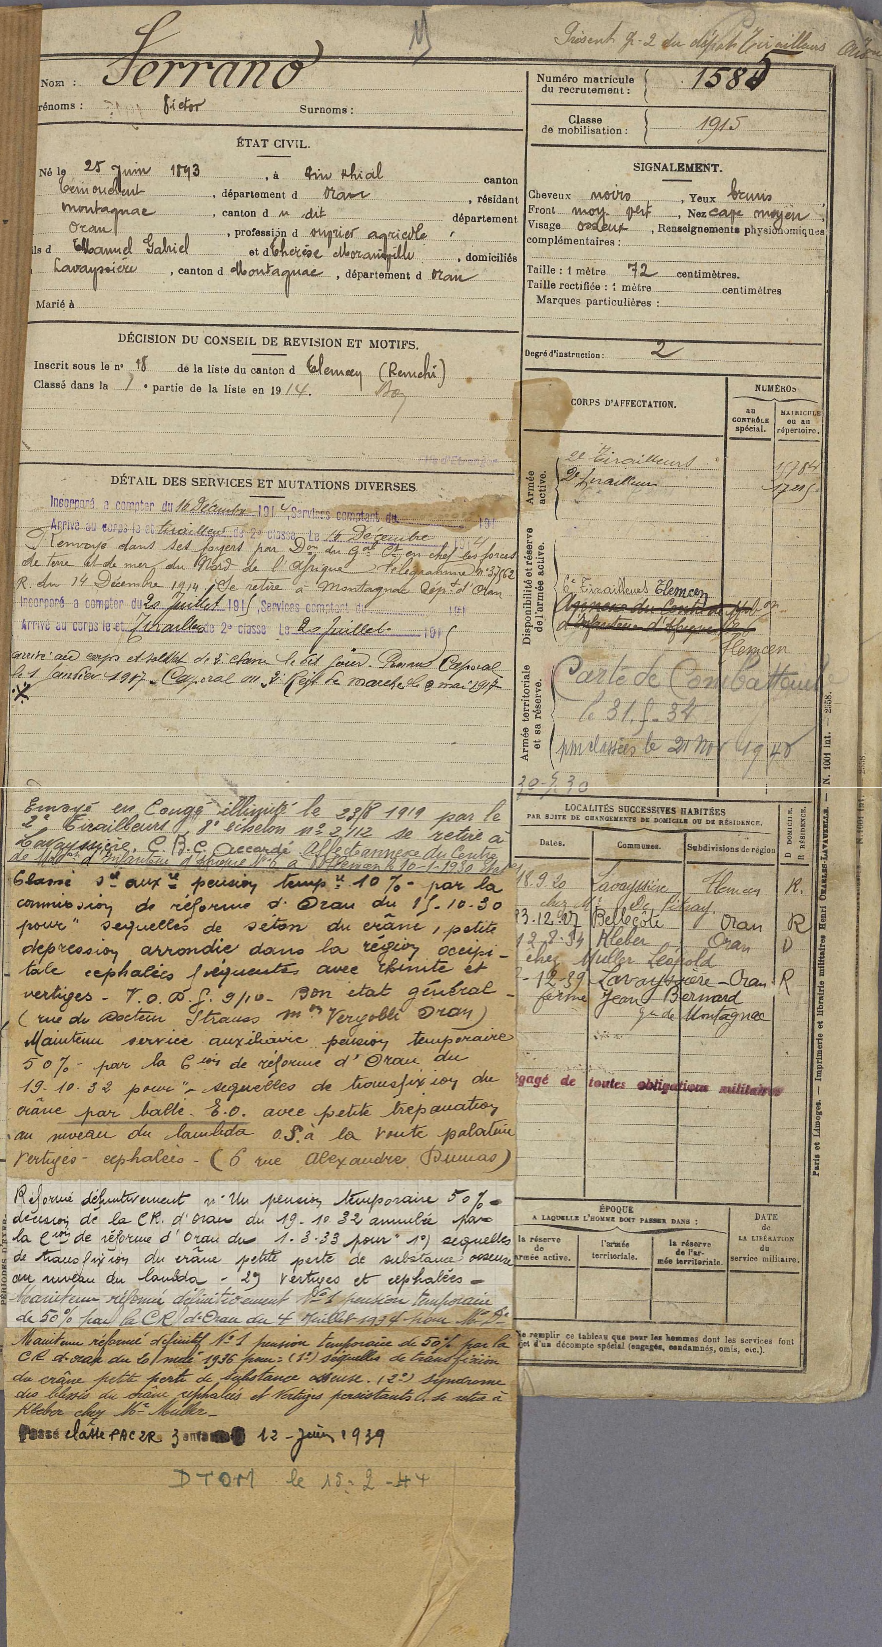 Présent du dépôt Tirailleurs
Nom : Serrano
Prénoms : Victor Surnoms :
ÉTAT CIVIL.
Né le 25 Juin 1893, à Ain Khial canton
Temouchent, département d Oran, résidant
Montagnac, canton d u dit département
Oran, profession d ouvrier agricole,
fils d Manuel Gabriel et d Thérèse, domiciliés
Lavayssière, canton d Montagnac, département d Oran
Marié à
DÉCISION DU CONSEIL DE REVISION ET MOTIFS.
Inscrit sous le nº 18 de la liste du canton d Tlemcen (Remchi)
Classé dans la º partie de la liste en 1914. Bon
DÉTAIL DES SERVICES ET MUTATIONS DIVERSES
Incorporé à compter du 16 Décembre 1914, Services comptant du 191
Arrivé au corps le et tirailleur de 2e classe Le 16 Décembre 1914
Renvoyé dans ses foyers par Don du Gal Ct en chef les forces
de terre et de mer du Nord de l'Afrique Télégramme nº 3762
R. du 14 Décembre 1914. Se retire à Montagnac Dépt d'Oran
Incorporé à compter du 20 Juillet 1915, Services comptant du 191
Arrivé au corps le et Tirailleur de 2e classe Le 20 Juillet 1915
arrivé au corps et soldat de 2e classe le dit jour. Caporal
le 1 Janvier 1917. Caporal au 2e Régt de marche le 9 mai 1917
Envoyé en Congé illimité le 23/8 1919 par le
2e Tirailleurs 8e échelon nº 2112 se retire à
Lavayssière. C.B.C. Accordé Affecté annexe du Centre
de Mobon d'Infanterie d'Afrique Nº 6 à Tlemcen le 10-1-1930
Classé sce auxre pension tempre 10% par la
commission de réforme d'Oran du 15-10-30
pour "séquelles de séton du crâne, petite
depression arrondie dans la région occipi-
tale cephalées fréquentes avec rhinite et
vertiges - V.O.D.G. 9/10 - Bon état général -
(rue du Docteur Strauss mon Vergobbi Oran)
Maintenu service auxiliaire pension temporaire
50% par la Cion de réforme d'Oran du
19-10-32 pour "- sequelles de transfixion du
crâne par balle. E.O. avec petite trépanation
au niveau du lambda O.S. à la voute palatine
Vertiges - cephalées - (6 rue Alexandre Dumas)
Réformé définitivement nº Un pension temporaire 50%
décision de la CR. d'Oran du 19-10 32 annulée par
la Cion de réforme d'Oran du 1-3-33 pour "1º) sequelles
de transfixion du crâne petite perte de substance osseuse
au niveau du lambda - 2º) Vertiges et cephalées =
Maintenu réformé définitivement Nº 1 pension temporaire
de 50% par la C.R. d'Oran du 4 Juillet 1934 pour
Maintenu réformé définitif Nº 1 pension temporaire de 50% par la
CR d'Oran du 1936 pour: (1º) Séquelles de transfixion
du crâne petite perte de substance osseuse. (2º) syndrome
des blessés du crâne cephalées et vertiges persistants. Se retire à
Kléber chez Mr Muller -
Passé classe PAC 2R 3 enfants 12 - Juin 1939
DTOM le 15-2-44
Numéro matricule du recrutement : 1585
Classe de mobilisation : 1915
SIGNALEMENT.
Cheveux noirs, Yeux bruns
Front moy. vert, Nez cave moyen,
Visage osseux, Renseignements physionomiques
complémentaires :
Taille : 1 mètre 72 centimètres.
Taille rectifiée : 1 mètre centimètres
Marques particulières :
Degré d'instruction : 2
CORPS D'AFFECTATION.
NUMÉROS
au CONTRÔLE spécial.
MATRICULE ou au répertoire.
Armée active.
2e Tirailleurs
2e Tirailleurs
Disponibilité et réserve de l'armée active.
2e Tirailleurs Tlemcen
Annexe du Centre de Mobon
d'Infanterie d'Afrique Nº 6
Tlemcen
Armée territoriale et sa réserve.
Carte de Combattant
le 31.5-34
le 21 Nov 1940
LOCALITÉS SUCCESSIVES HABITÉES
PAR SUITE DE CHANGEMENTS DE DOMICILE OU DE RÉSIDENCE.
Dates. Communes. Subdivisions de région
D DOMICILE. R RÉSIDENCE.
18.9.20 Lavayssière Tlemcen R.
23.12.27 Bellecôte Oran R
12 8-34 Kléber Oran D
chez Muller Léopold
-12-39 Lavayssière - Oran R
ferme Jean Bernard
Montagnac
dégagé de toutes obligations militaires
ÉPOQUE
A LAQUELLE L'HOMME DOIT PASSER DANS :
la réserve de l'armée active.
l'armée territoriale.
la réserve de l'armée territoriale.
DATE de LA LIBÉRATION du service militaire.
Ne remplir ce tableau que pour les hommes dont les services font
l'objet d'un décompte spécial (engagés, condamnés, omis, etc.).
Paris et Limoges. — Imprimerie et librairie militaires Henri CHARLES-LAVAUZELLE. — N. 1001 int. — 2558.